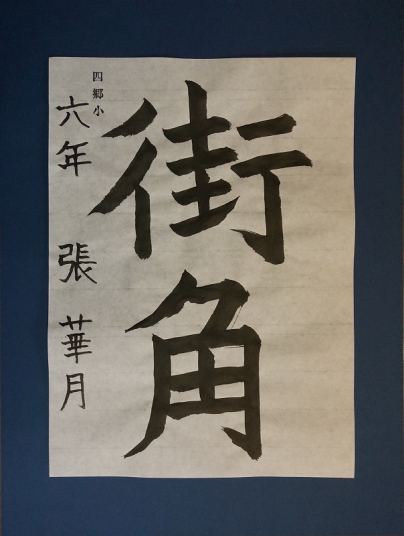 街角
四郷小
六年 張 華月